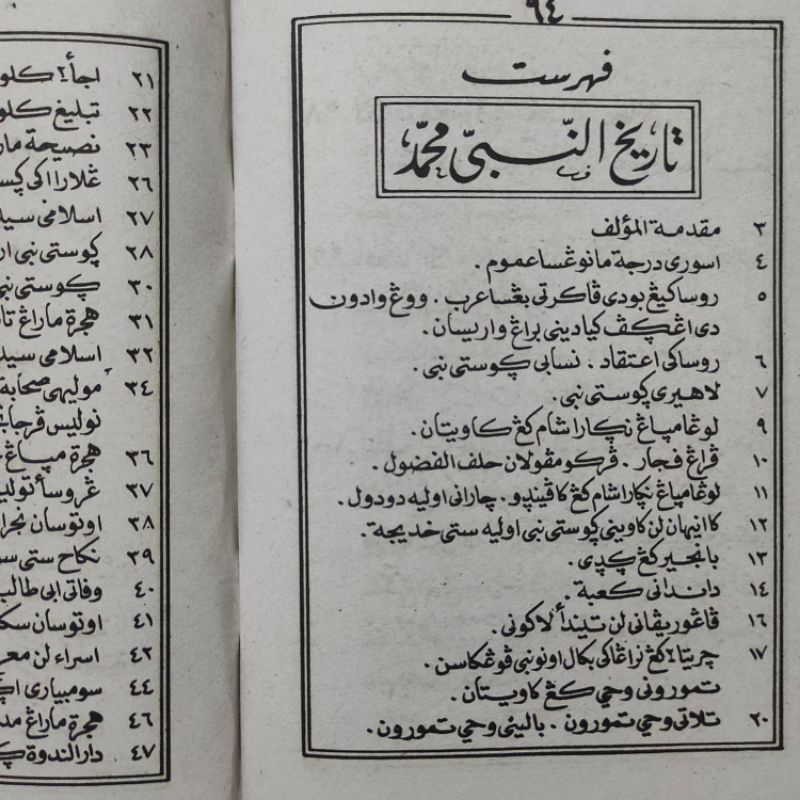 ٩٤
فهرست
تاريخ النّبيّ محمّد
٣ مقدمة المؤلف
٤ اسوري درجة مانوڠسا عموم .
٥ روساكيڠ بودي ڤاكرتي بڠسا عرب . ووڠ وادون
دي اڠڮڤ كيا ديني براڠ واريسان .
٦ روساكي اعتقاد . نسابي ڮوستي نبي .
٧ لاهيري ڮوستي نبي .
٩ لوڠا مياڠ نڮارا شام كڠ كاويتان .
١٠ ڤراڠ فجار . ڤركومڤولان حلف الفضول .
١١ لوڠا مياڠ نڮارا شام كڠ كاڤيندو . چاراني اوليه دودول .
١٢ كاانيهان لن كاويني ڮوستي نبي اوليه ستي خديجة .
١٣ بانجير كڠ ڮدي .
١٤ دانداني كعبة .
١٦ ڤاڠوريڤاني لن تيندأ لاكوني .
١٧ چريتا٢ كڠ نراڠاكي بكال اونو نبي ڤوڠكاسن .
تمورونى وحي كڠ كاويتان .
٢٠ تلاتي وحي تمورون . باليني وحي تمورون .
٢١ اجأ٢ كلو
٢٢ تبليغ كلو
٢٣ نصيحة مار
٢٦ ڠلارا اكي
٢٧ اسلامي سيد
٢٨ ڮوستي نبي
٣٠ ڮوستي نبي
٣١ هجرة ماراڠ
٣٢ اسلامي سيد
٣٤ موليهي صحابة
نوليس
٣٦ هجرة مياڠ
٣٧ ڠروسأ
٣٨ اوتوسان نجرا
٣٩ نكاح ستي سو
٤٠ وفاتي ابي طالب
٤١ اوتوسان
٤٢ اسراء لن معر
٤٤ سومبياري
٤٦ هجرة ماراڠ مد
٤٧ دار الندوة